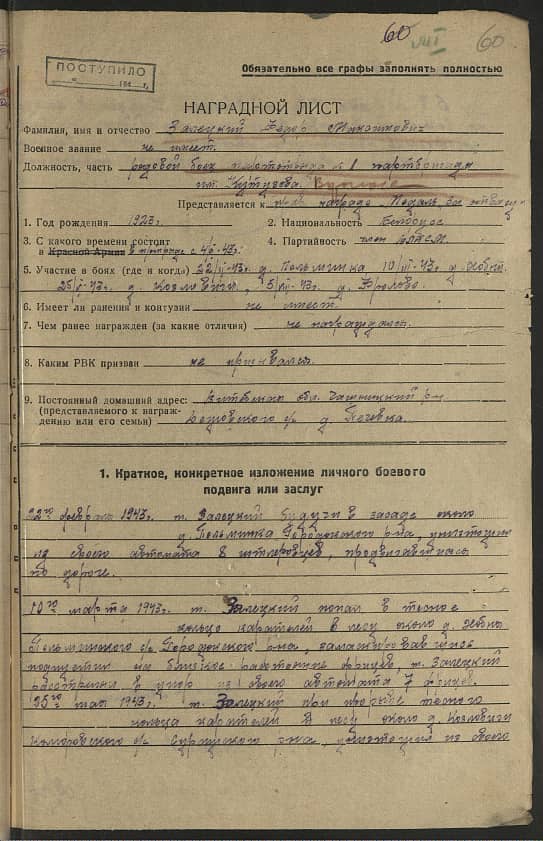 60 60
Обязательно все графы заполнять полностью
ПОСТУПИЛО
НАГРАДНОЙ ЛИСТ
Фамилия, имя и отчество Залецкий Федор
Военное звание не имеет.
Должность, часть рядовой боец 1 партбригады
им. Кутузова.
Представляется к прав. награде Медаль За отвагу
1. Год рождения 1923 г. 2. Национальность Белорус
3. С какого времени состоит 4. Партийность член ВЛКСМ.
в Красной Армии в бригаде с
5. Участие в боях (где и когда) 22/II-43г. д. Пальминка 10/III-43г.
25/V-43г. д. Козловичи, д. Фролово.
6. Имеет ли ранения и контузии не имеет
7. Чем ранее награжден (за какие отличия) не награждался.
8. Каким РВК призван не призывался.
9. Постоянный домашний адрес: Витебская обл. Чашницкий р-н
(представляемого к награж-
дению или его семьи) с/с д.
1. Краткое, конкретное изложение личного боевого
подвига или заслуг
22го февраля 1943г. т. Залецкий будучи в засаде около
д. Пальминка Городокского р-на, уничтожил
из своего автомата 8 гитлеровцев, продвигавшихся
по дороге.
10го марта 1943г. т. Залецкий попал в тесное
кольцо карателей в лесу около д.
Пальминского с/с Городокского р-на, замаскировавшись
подпустил на близкое расстояние фрицев, т. Залецкий
расстрелял в упор из своего автомата 7 фрицев.
25го мая 1943г. т. Залецкий при прорыве тесного
кольца карателей в лесу около д. Козловичи
с/с Суражского р-на, уничтожил из своего